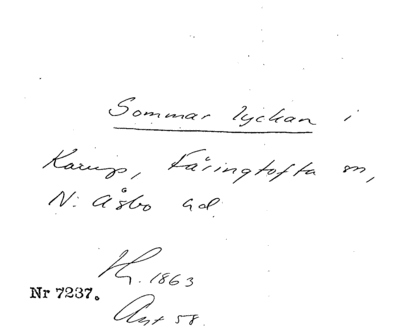 Sommar lyckan i
Karup, Färingtofta sn,
N: Åsbo hd.
1863
Nr 7237.
Akt 58.